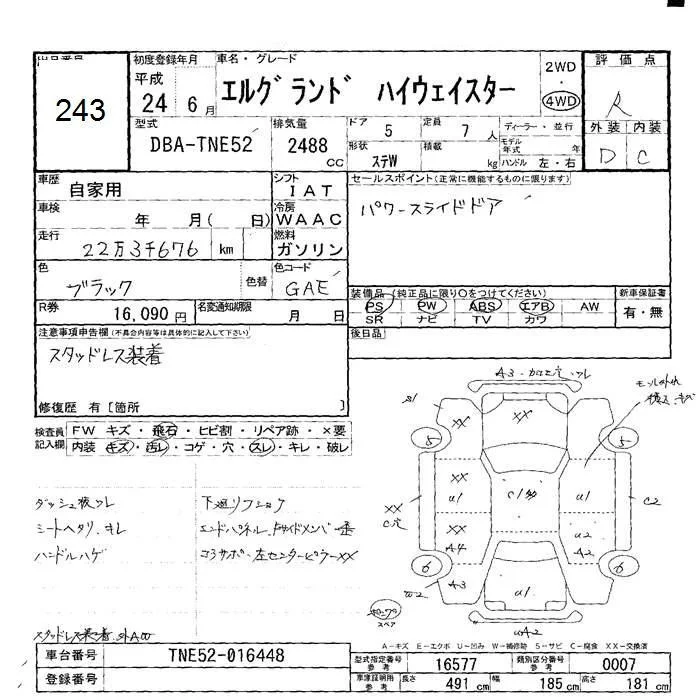 初度登録年月
車名・グレード
平成
24年 6月
エルグランド ハイウェイスター
2WD
・
4WD
評価点
R
243
型式
DBA-TNE52
排気量
2488 CC
ドア 5
定員 7人
ディーラー・並行
形状 ステW
積載 kg
モデル年式 年
ハンドル 左・右
外装 内装
D C
車歴 自家用
シフト IAT
セールスポイント(正常に機能するものに限ります)
車検 年 月( 日)
冷房 WAAC
パワースライドドア
走行 22万3千676 km
燃料 ガソリン
色 ブラック 色替
色コード GAE
装備品 (純正品に限り○をつけてください)
新車保証書
PS PW ABS エアB AW
有・無
SR ナビ TV カワ
R券 16,090円
名変通知期限 月 日
後日品
注意事項申告欄(不具合内容等は具体的に記入して下さい)
スタッドレス装着
修復歴 有 [箇所 ]
検査員記入欄
FW キズ・飛石・ヒビ割・リペア跡・×要
内装 キズ・汚レ・コゲ・穴・スレ・キレ・破レ
ダッシュ板ワレ
シートヘタリ、キレ
ハンドルハゲ
下廻リフショク
エンドパネル
左センターピラーXX
スタッドレス装着
XX
XX
5
5
XX
U1
XX
U1
C2
XX
A4
U2
A2
6
6
A3
W2
U1
スペア
A-キズ E-エクボ U-凹み W-補修跡 S-サビ C-腐食 XX-交換済
車台番号 TNE52-016448
登録番号
型式指定番号参考 16577
類別区分番号参考 0007
車庫証明用参考 長さ 491cm 幅 185cm 高さ 181cm